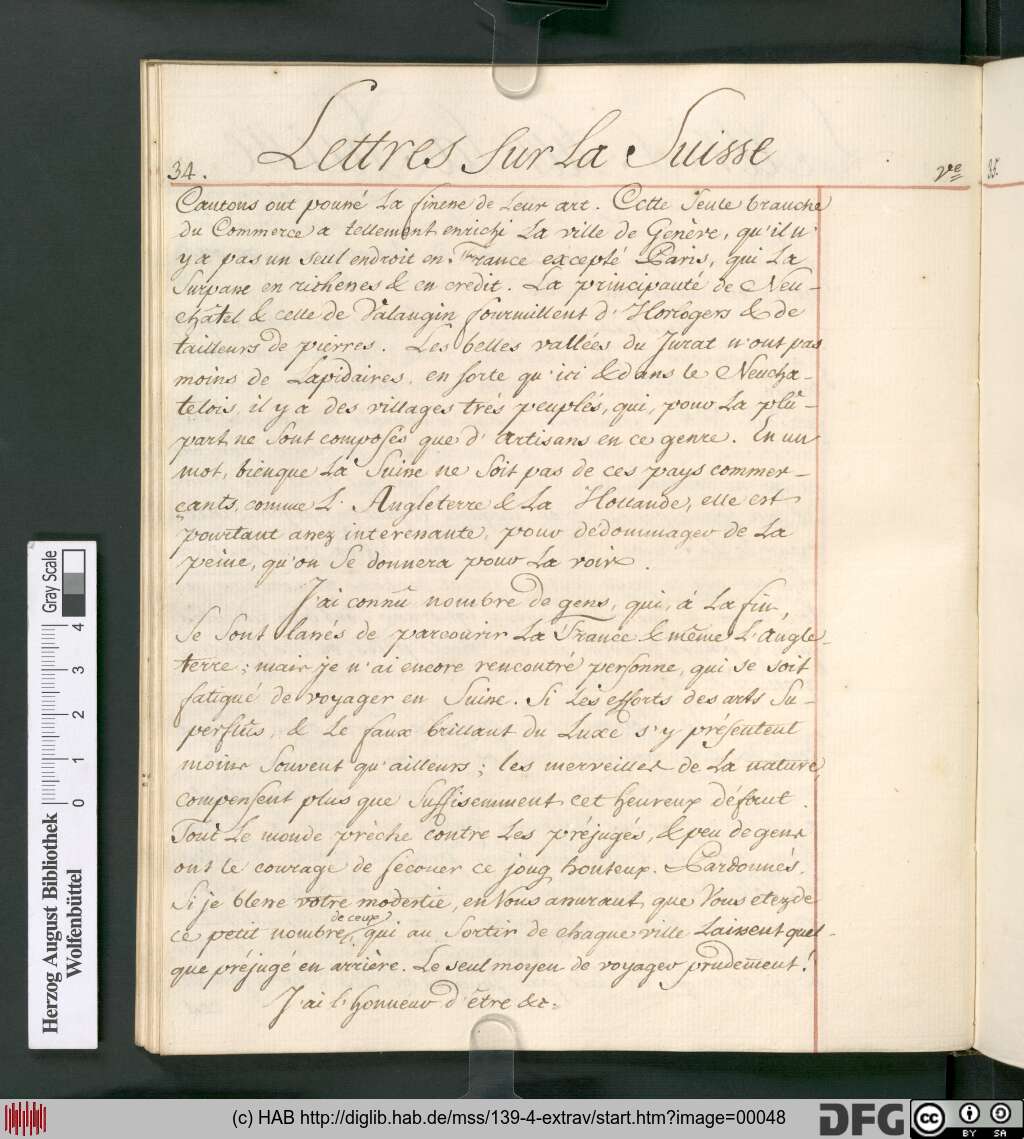 Lettres sur la Suisse
34.
Ve
35.
Cantons ont poussé la finesse de leur art. Cette seule branche
du Commerce a tellement enrichi la ville de Genève, qu'il n'
y a pas un seul endroit en France excepté Paris, qui la
surpasse en richesses & en crédit. La principauté de Neu-
châtel & celle de Valangin fourmillent d'Horlogers & de
tailleurs de pierres. Les belles vallées du Jurat n'ont pas
moins de Lapidaires, en sorte qu'ici & dans le Neucha-
telois, il y a des villages trés peuplés, qui, pour la plû-
part ne sont composés que d'artisans en ce genre. En un
mot, bienque la Suisse ne soit pas de ces pays commer-
çants, comme l'Angleterre & la Hollande, elle est
pourtant assez interessante, pour dédommager de la
peine, qu'on se donnera pour la voir.
J'ai connû nombre de gens, qui, à la fin,
se sont lassés de parcourir la France & même l'Angle-
terre; mais je n'ai encore rencontré personne, qui se soit
fatigué de voyager en Suisse. Si les efforts des arts su-
perflus, & le faux brillant du Luxe s'y présentent
moins souvent qu'ailleurs; les merveilles de la nature
compensent plus que suffisemment cet heureux défaut.
Tout le monde prèche contre les préjugés, & peu de gens
ont le courage de secouer ce joug honteux. Pardonnés,
si je blesse votre modestie, en Vous assurant, que Vous etez de
ce petit nombre de ceux, qui au sortir de chaque ville laissent quel-
que préjugé en arrière. Le seul moyen de voyager prudemment!
J'ai l'honneur d'être &c.
Gray Scale
0 1 2 3 4
Herzog August Bibliothek
Wolfenbüttel
(c) HAB http://diglib.hab.de/mss/139-4-extrav/start.htm?image=00048
DFG
cc BY SA